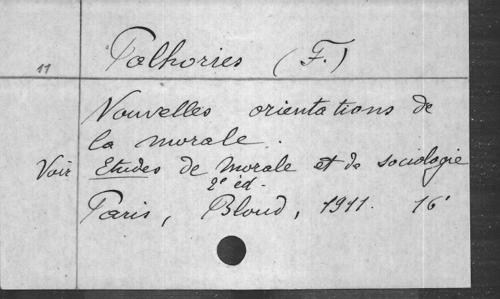 11 Palhories (F.)
Nouvelles orientations de
la morale.
Voir Etudes de morale et de sociologie
2e éd.
Paris, Bloud, 1911. 16°